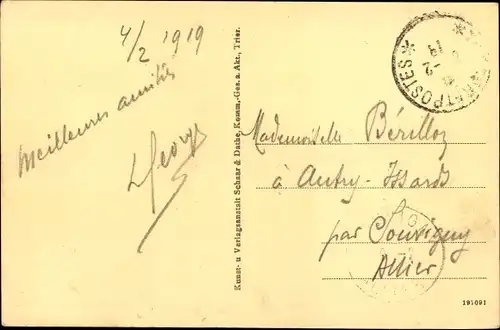 4/2 1919
Meilleures amitiés
George
Kunst- u Verlagsanstalt Schaar & Dathe, Komm.-Ges. a. Akt., Trier.
POSTES
Mademoiselle Bérilloz
à Autry-Issards
par Souvigny
Allier
191091